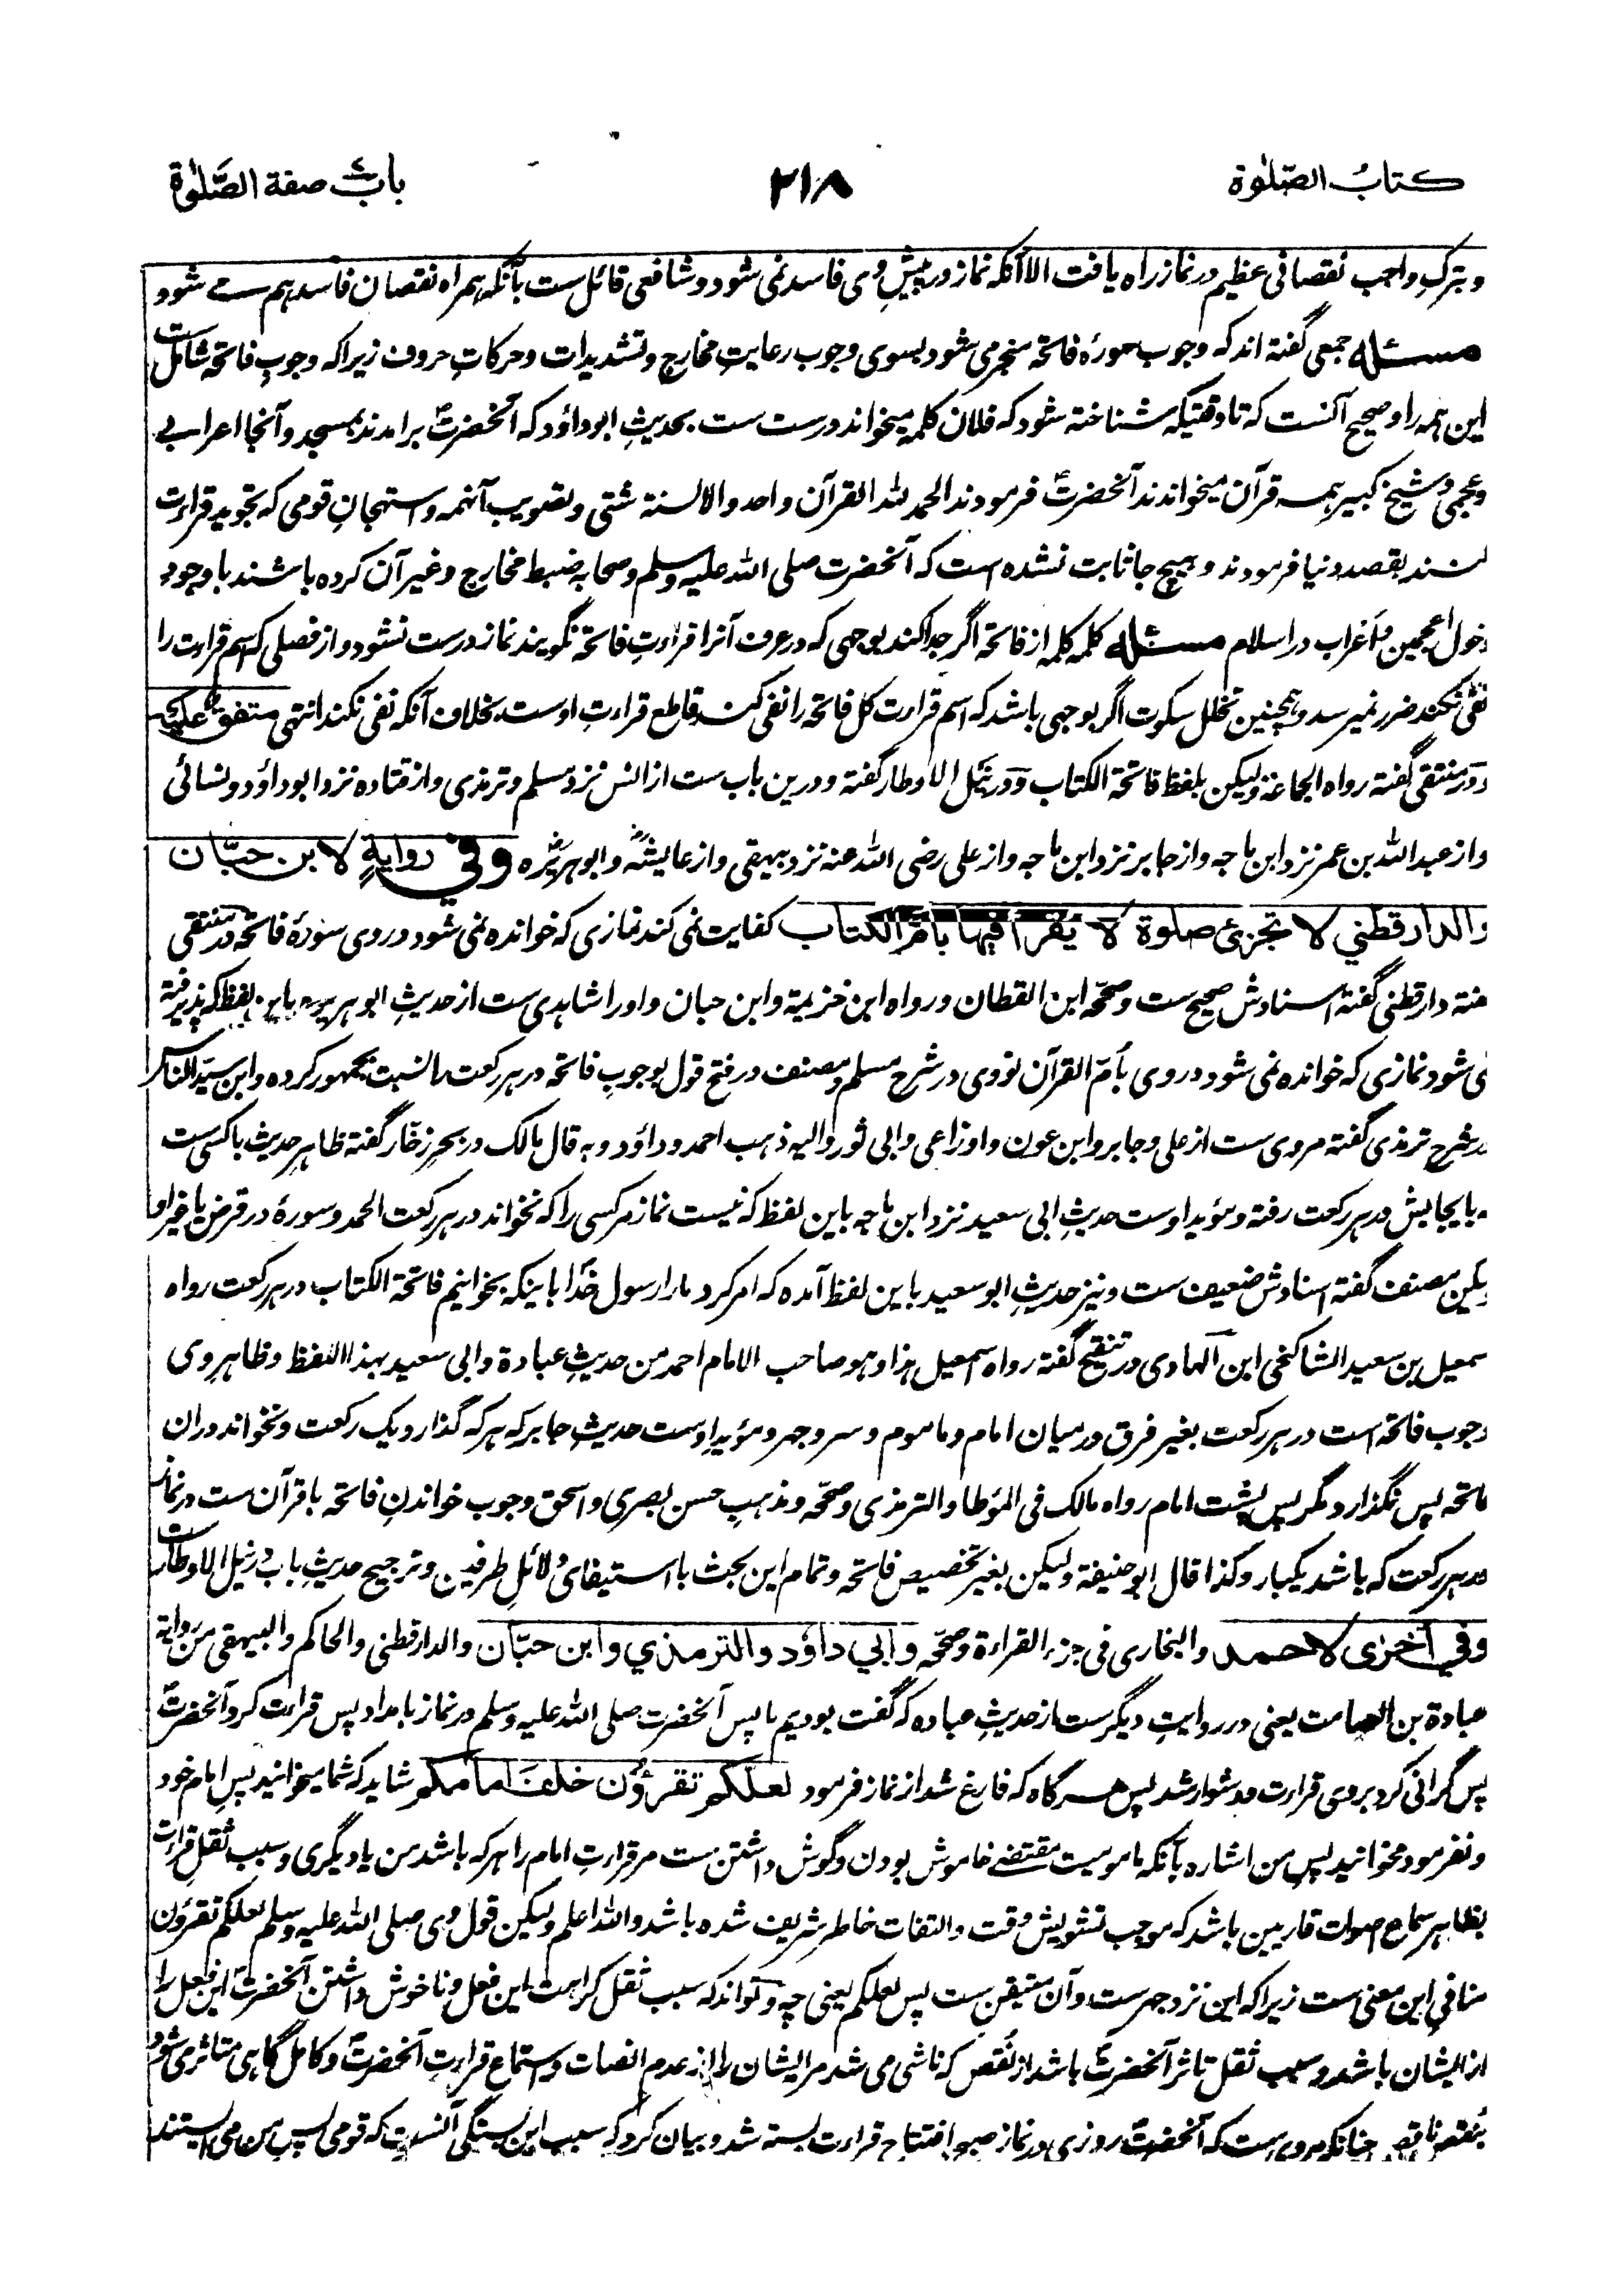 كتابُ الصّلوٰة
٢١٨
بابُ صفة الصَّلوٰة
و بترکِ واجب نقصانی عظیم در نماز راه یافت الا آنکه نماز در پیشِ وی فاسد نمی شود و شافعی قائل ست بآنکه همراه نقصان فاسد هم می شود
مسئله جمعی گفته اند که وجوب سورهٔ فاتحه منجر می شود بسوی وجوب رعایتِ مخارج و تشدیدات و حرکاتِ حروف زیرا که وجوبِ فاتحه شامل ست
این همه را و صحیح آنست که تا وقتیکه شناخته شود که فلان کلمه میخواند درست ست بحدیثِ ابوداؤد که آنحضرتؐ برامدند بمسجد و آنجا اعرابی
و عجمی و شیخ کبیر همه قرآن میخواندند آنحضرتؐ فرمودند الحمد لله القرآن واحد والالسنة شتی و تصویب آنهمه و استهجانِ قومی که تجوید قراءت
کنند بقصد دنیا فرمودند و هیچ جا ثابت نشده است که آنحضرت صلی الله علیه وسلم و صحابه ضبط مخارج و غیر آن کرده باشند با وجود
دخول اعجمین و اعراب در اسلام مسئله کلمه کلمه از فاتحه اگر جدا کند بوجهی که در عرف آنرا قراءتِ فاتحه نگویند نماز درست نشود و از فصلی که اسم قراءت را
نفی نکند ضرر نمیرسد و همچنین تخلل سکوت اگر بوجهی باشد که اسم قراءت کل فاتحه را نفی کند قاطع قراءتِ اوست بخلاف آنکه نفی نکند انتهی متفق علیه
و در منتقی گفته رواه الجماعة ولیکن بلفظ فاتحة الکتاب و در نیل الاوطار گفته و درین باب ست از انس نزد مسلم و ترمذی و از قتاده نزد ابوداؤد و نسائی
و از عبدالله بن عمر نزد ابن ماجه و از جابر نزد ابن ماجه و از علی رضی الله عنه نزد بیهقی و از عایشهؓ و ابوهریرهؓ وفي روايةٍ لابن حبّان
والدارقطني لا تجزئ صلوة لا يقرأ فيها بامّ الكتاب کفایت نمی کند نمازی که خوانده نمی شود در وی سورهٔ فاتحه در منتقی
گفته دارقطنی گفته اسنادش صحیح ست و صحّحه ابن القطان و رواه ابن خزیمة وابن حبان و او را شاهدی ست از حدیثِ ابوهریره باین لفظ که پذیرفته
نمی شود نمازی که خوانده نمی شود در وی بأمّ القرآن نووی در شرح مسلم و مصنف در فتح قول بوجوبِ فاتحه در هر رکعت را نسبت بجمهور کرده و ابن سیّد الناس
در شرح ترمذی گفته مروی ست از علی و جابر و ابن عون و اوزاعی و ابی ثور و الیه ذهب احمد و داؤد و به قال مالک در بحر زخّار گفته ظاهرِ حدیث با کسی ست
که بایجابش در هر رکعت رفته و مؤید اوست حدیثِ ابی سعید نزد ابن ماجه باین لفظ که نیست نماز مر کسی را که نخواند در هر رکعت الحمد و سورهٔ در فرض یا غیر او
لیکن مصنف گفته اسنادش ضعیف ست و نیز حدیثِ ابوسعید باین لفظ آمده که امر کرد ما را رسول خدا باینکه بخوانیم فاتحة الکتاب در هر رکعت رواه
اسمعیل بن سعید الشاکنجی ابن الهادی در تنقیح گفته رواه اسمعیل هذا و هو صاحب الامام احمد من حدیثِ عبادة وابی سعید بهذا اللفظ و ظاهر وی
وجوب فاتحه است در هر رکعت بغیر فرق در میان امام و ماموم و سر و جهر و مؤید اوست حدیثِ جابر که هر که گذارد یک رکعت و نخواند دران
فاتحه پس نگذارد مگر پس پشت امام رواه مالک فی المؤطا والترمذی وصحّحه و مذهبِ حسن بصری و اسحق وجوب خواندنِ فاتحه یا قرآن ست در نماز
در هر رکعت که باشد یکبار وکذا قال ابوحنیفة ولیکن بغیر تخصیص فاتحه و تمام این بحث با استیفای دلائلِ طرفین و ترجیح حدیثِ باب در نیل الاوطار ست
وفي أخرى لاحمد والبخاری فی جزء القراءة وصحّحه وابي داؤد والترمذي وابن حبّان والدارقطنی والحاکم والبیهقی من روایة
عبادة بن الصامت یعنی در روایتِ دیگر ست از حدیثِ عباده که گفت بودیم ما پس آنحضرت صلی الله علیه وسلم در نماز بامداد پس قراءت کرد آنحضرتؐ
پس گرانی کرد بروی قراءت و دشوار شد پس هرگاه که فارغ شد از نماز فرمود لعلكم تقرؤن خلف امامكم شاید که شما میخوانید پسِ امام خود
و نفرمود میخوانید پس من اشاره بآنکه مامومیت مقتضی خاموش بودن و گوش داشتن ست مر قراءتِ امام را هر که باشد من یا دیگری و سبب ثقل قراءت
بظاهر سماع اصوات قاریین باشد که موجب تشویش وقت و التفات خاطر شریف شده باشد والله اعلم ولیکن قول وی صلی الله علیه وسلم لعلکم تقرؤن
منافیِ این معنی ست زیرا که این نزد جهر ست و آن متیقن ست پس لعلکم یعنی چه و تواند که سبب ثقل کراهت این فعل و ناخوش داشتن آنحضرتؐ این فعل را
از ایشان باشد و سبب ثقل تاثر آنحضرتؐ باشد از نقص که ناشی می شد مر ایشان را از عدم انصات و استماع قراءتِ آنحضرتؐ و کامل گاهی متاثر می شود
بنقص ناقص چنانکه مروی ست که آنحضرتؐ روزی در نماز صبح افتتاح قراءت بسته شد و بیان کرد که سبب این بستگی آنست که قومی پس من می ایستند